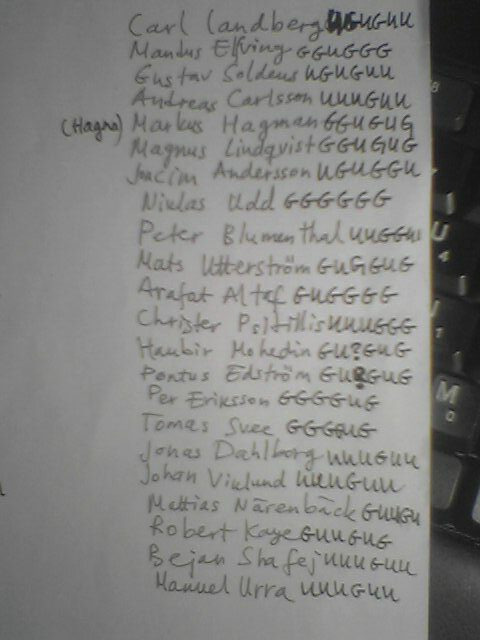 Carl Landberg UGUGUU
Mandus Elfving GGUGGG
Gustav Soldeus UGUGUU
Andreas Carlsson UUUGUU
(Hagma) Markus Hagman GGUGUG
Magnus Lindqvist GGUGUG
Joacim Andersson UGUGGU
Niklas Udd GGGGGG
Peter Blumenthal UUGGUU
Mats Utterström GUGGUG
Arafat Altaf GUGGGG
Christer UUUGGG
Haubir Mohedin GU?GUG
Pontus Edström GU?GUG
Per Eriksson GGGGUG
Tomas Svee GGGGUG
Jonas Dahlborg UUUGUU
Johan Viklund UUUGUU
Mattias Närenbäck GUUGU
Robert Kaye GUUGUG
Bejan Shafej UUUGUU
Manuel Urra UUUGUU
U
4
1
M
0